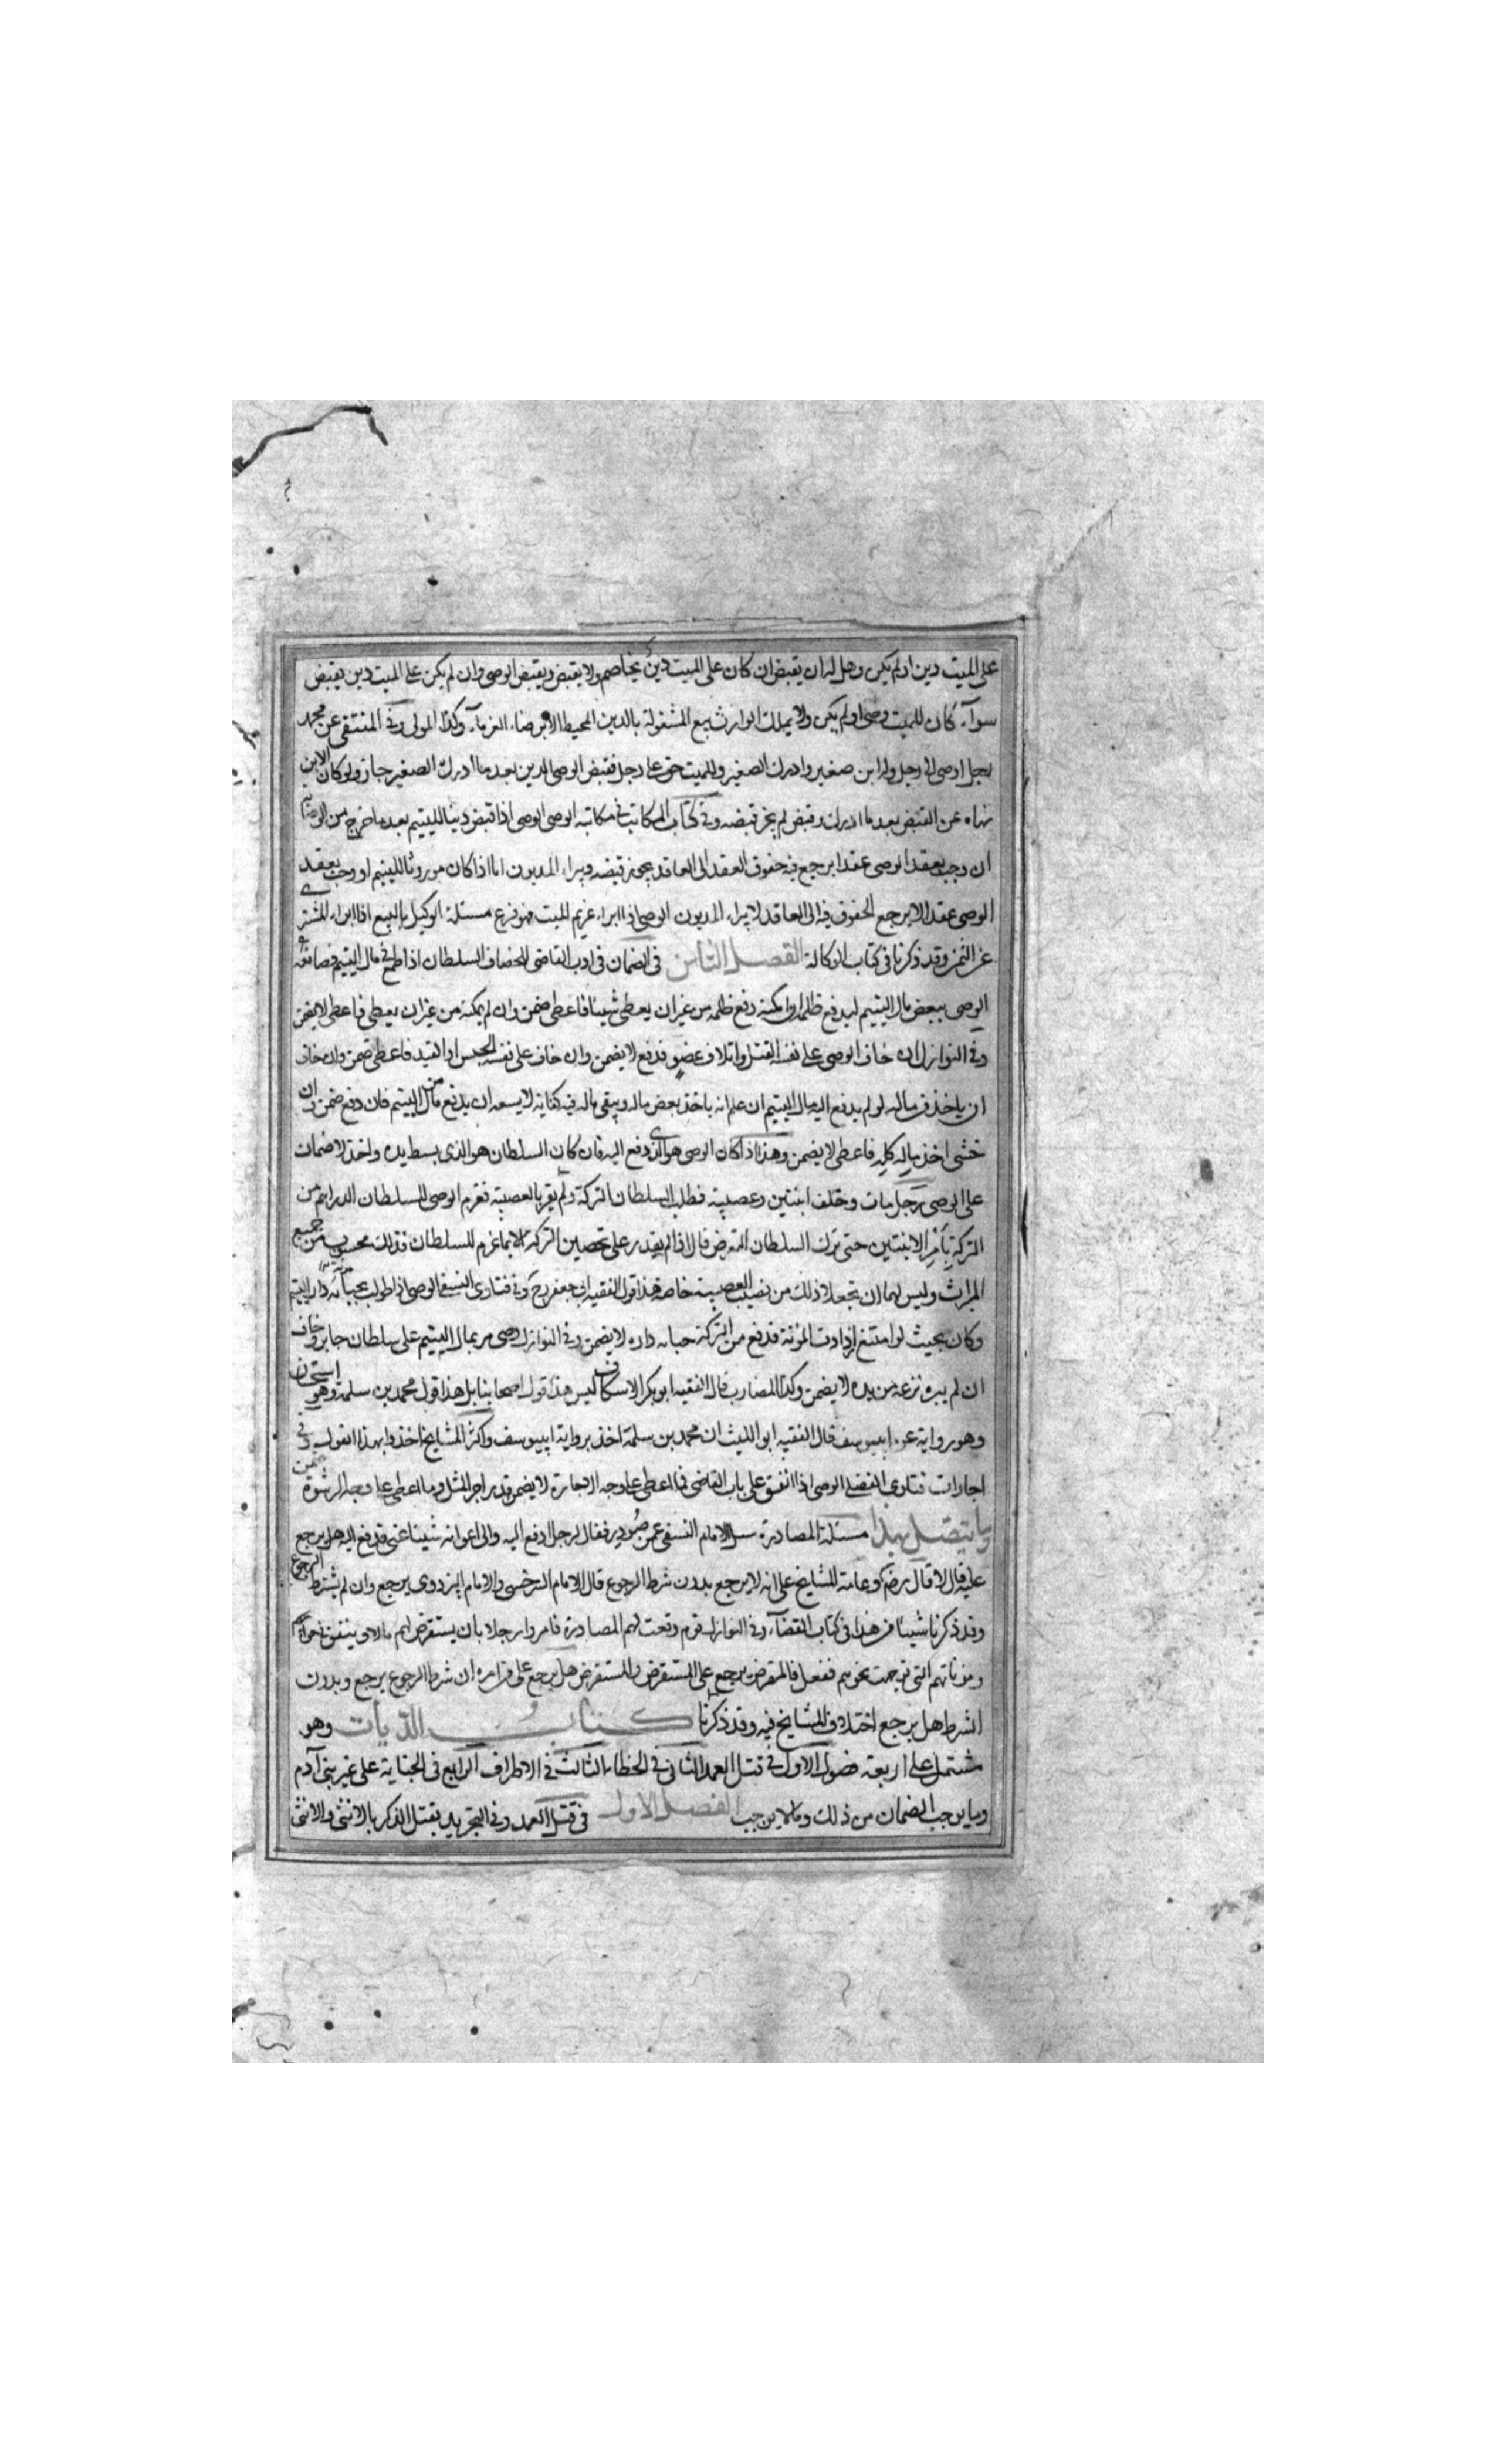 على الميت دين او لم يكن وهل له ان يقبض ان كان على الميت دين يخاصم ولا يقبض ويقبض الوصى وان لم يكن على الميت دين يقبض
سوآء كان للميت وصى او لم يكن ولا يملك الوارث بيع المشغولة بالدين المحيط الا برضاء الغرمآء وكذا المولى وفى المنتقى عن محمد
رجل اوصى الى رجل وله ابن صغير وادرك الصغير وللميت حق على رجل فقبض الوصى الدين بعد ما ادرك الصغير جاز ولو كان الابن
نهاه عن القبض بعد ما ادرك وقبض لم يجز قبضه وفى كتاب المكاتب فى مكاتبة الوصى الوصى اذا قبض دينا لليتيم بعد ما خرج من الوصاية
ان وجب بعقد الوصى عقدا يرجع فيه حقوق العقد الى العاقد يجوز قبضه ويبراء المديون اما اذا كان موروثا لليتيم او وجب بعقد
الوصى عقدا لا يرجع الحقوق فيه الى العاقد لا يبراء المديون الوصى اذا ابراء غريم الميت فهو فرع مسئلة الوكيل بالبيع اذا ابراء المشترى
عن الثمن وقد ذكرنا فى كتاب الوكالة الفصل الثامن فى الضمان فى ادب القاضى للخصاف السلطان اذا طمع فى مال اليتيم فصانعه
الوصى ببعض مال اليتيم ليدفع ظلمه ان امكنه دفع ظلمه من غير ان يعطى شيئا فاعطى ضمن وان لم يمكنه من غير ان يعطى فاعطى لا يضمن
وفى النوازل ان خاف الوصى على نفسه القتل او اتلاف عضو فدفع لا يضمن وان خاف على نفسه الحبس او القيد فاعطى ضمن وان خاف
ان ياخذ من ماله لو لم يدفع اليه مال اليتيم ان علم انه ياخذ بعض ماله ويبقى ماله فيه كفاية لا يسعه ان يدفع من مال اليتيم فان دفع ضمن وان
خشى اخذ ماله كله فاعطى لا يضمن وهذا اذا كان الوصى هو الذى دفع اليه فان كان السلطان هو الذى بسط يده واخذ لا ضمان
على الوصى رجل مات وخلف ابنتين وعصبة فطلب السلطان التركة ولم يقر بالعصبة فغرم الوصى للسلطان الدراهم من
التركة بامر الابنتين حتى ترك السلطان التعرض قال اذا لم يقدر على تحصين التركة الا بما غرم للسلطان فذلك محسوب من جميع
الميراث وليس لهما ان تجعلا ذلك من نصيب العصبة خاصة هذا قول الفقيه ابى جعفر رح وفى فتاوى النسفى الوصى اذا طولب بجباية دار اليتيم
وكان بحيث لو امتنع ازدادت المؤنة فدفع من التركة جباية داره لا يضمن وفى النوازل وصى مر بمال اليتيم على سلطان جابر وخاف
ان لم يبره نزعه من يده لا يضمن وكذا المضارب قال الفقيه ابو بكر الاسكاف ليس هذا قول اصحابنا بل هذا قول محمد بن سلمة وهو استحسان
وهو رواية عن ابييوسف قال الفقيه ابو الليث ان محمد بن سلمة اخذ برواية ابييوسف واكثر المشايخ اخذوا بهذا القول وفى
اجارات فتاوى الفضلى الوصى اذا انفق على باب القاضى فما اعطى على وجه الاجارة لا يضمن قدر اجر المثل وما اعطى على وجه الرشوة ضمن
وما يتصل بهذا مسئلة المصادرة سئل الامام النسفى عمن صودر فقال لرجل ادفع اليه والى اعوانه شيئا عنى فدفع اليه هل يرجع
عليه قال لا قال رضه وعامة المشايخ على انه لا يرجع بدون شرط الرجوع قال الامام السرخسى والامام البزدوى يرجع وان لم يشترط الرجوع
وقد ذكرنا شيئا من هذا فى كتاب القضآء وفى النوازل قوم وقعت لهم المصادرة فامروا رجلا بان يستقرض لهم مالا وينفق فى حوائجهم
ومؤناتهم التى توجهت نحوهم ففعل فالمقرض يرجع على المستقرض والمستقرض هل يرجع على قرانه ان شرط الرجوع يرجع وبدون
الشرط هل يرجع اختلاف المشايخ فيه وقد ذكرنا كتاب الديات وهو
مشتمل على اربعة فصول الاول فى قتل العمد الثانى فى الخطاء الثالث فى الاطراف الرابع فى الجناية على غير بنى آدم
وما يوجب الضمان من ذلك وما لا يوجب الفصل الاول فى قتل العمد وفى التجريد يقتل الذكر بالانثى والانثى